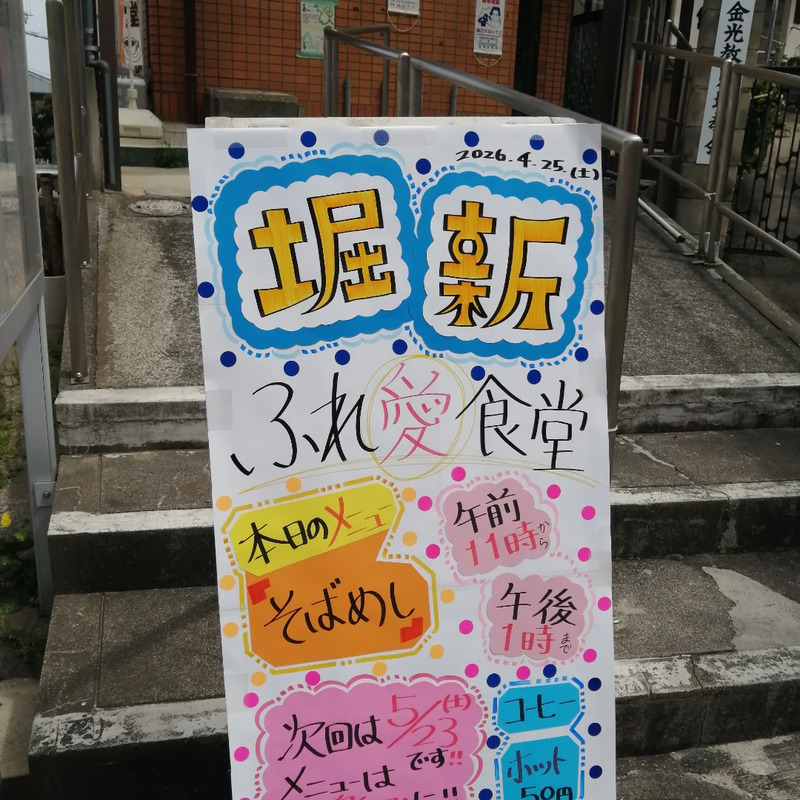 2026.4.25.(土)
堀新
ふれ愛食堂
本日のメニュー
そばめし
午前
11時から
午後
1時まで
次回は5/23(土)
です!!
メニューは
コーヒー
ホット
50円
金光教